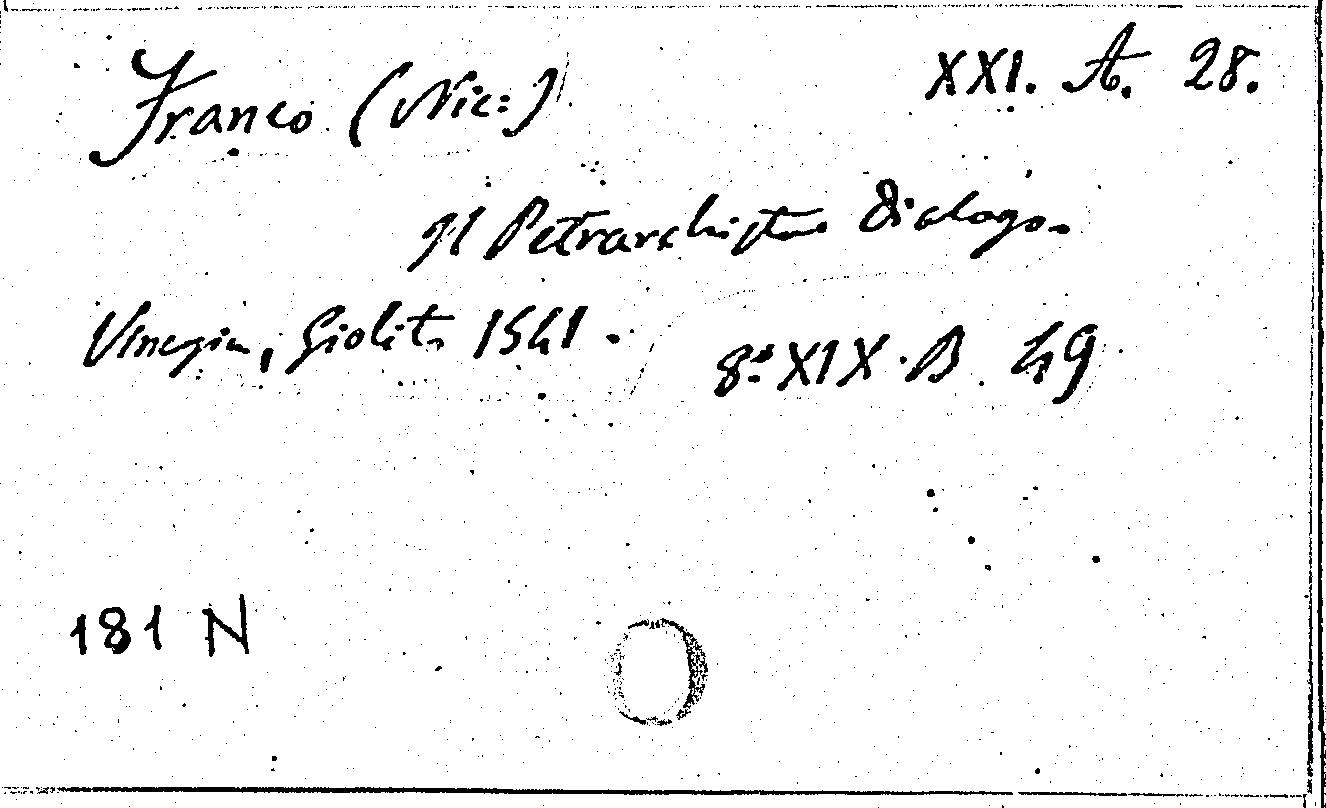 Franco (Nic:) XXI. A. 28.
Il Petrarchista Dialogo.
Vinegia, Giolito 1541. 8º XIX. B 49
181 N